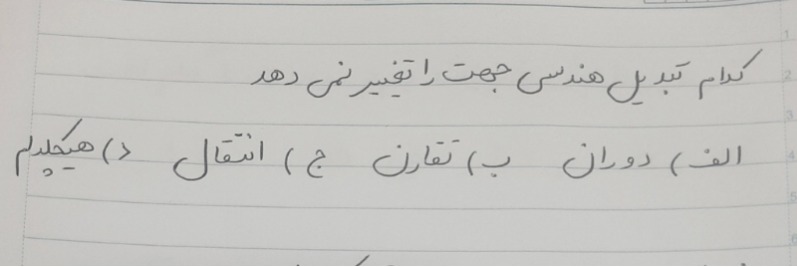 کدام تبدیل هندسی جهت را تغییر نمی دهد
الف) دوران ب) تقارن ج) انتقال د) هیچکدام